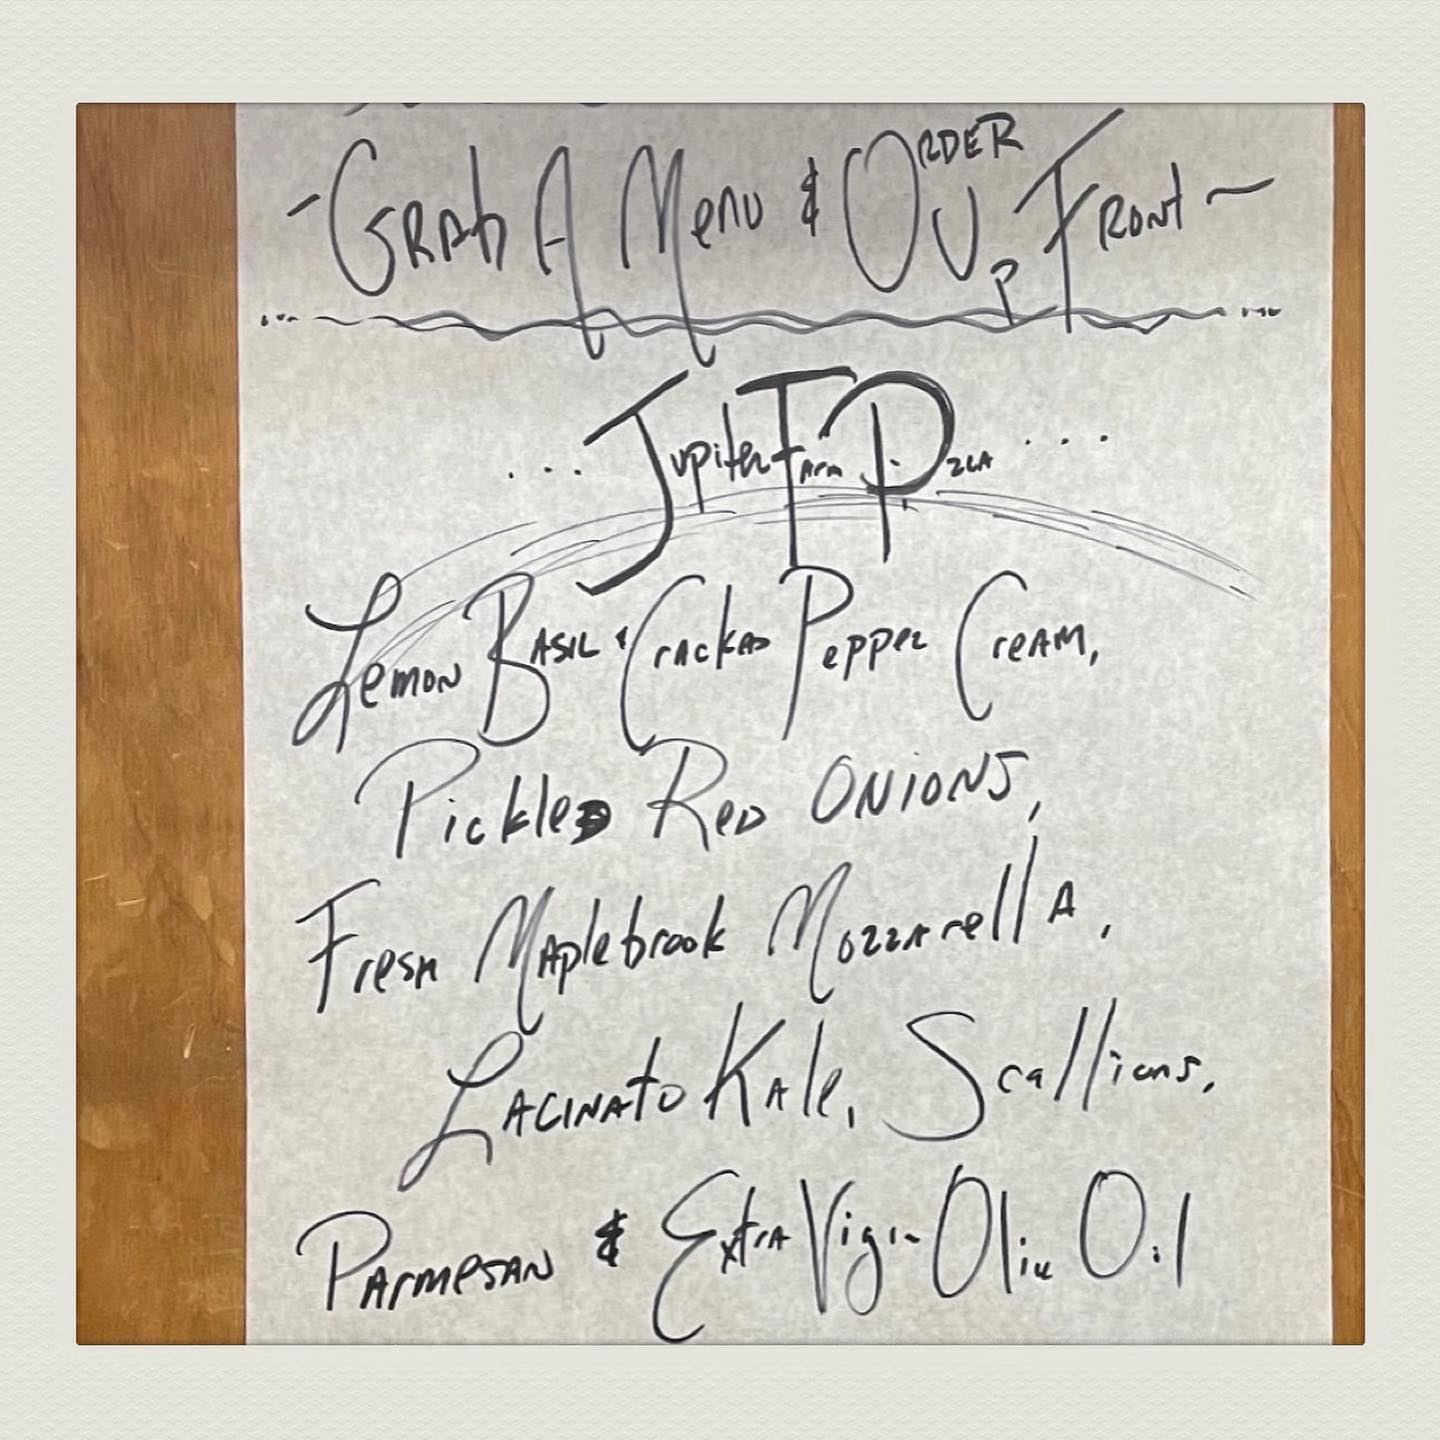 - Grab A Menu & Order Up Front ~
... Jupiter Farm Pizza ....
Lemon Basil & Cracked Pepper Cream,
Pickled Red Onions,
Fresh Maplebrook Mozzarella,
Lacinato Kale, Scallions,
Parmesan & Extra Virgin Olive Oil